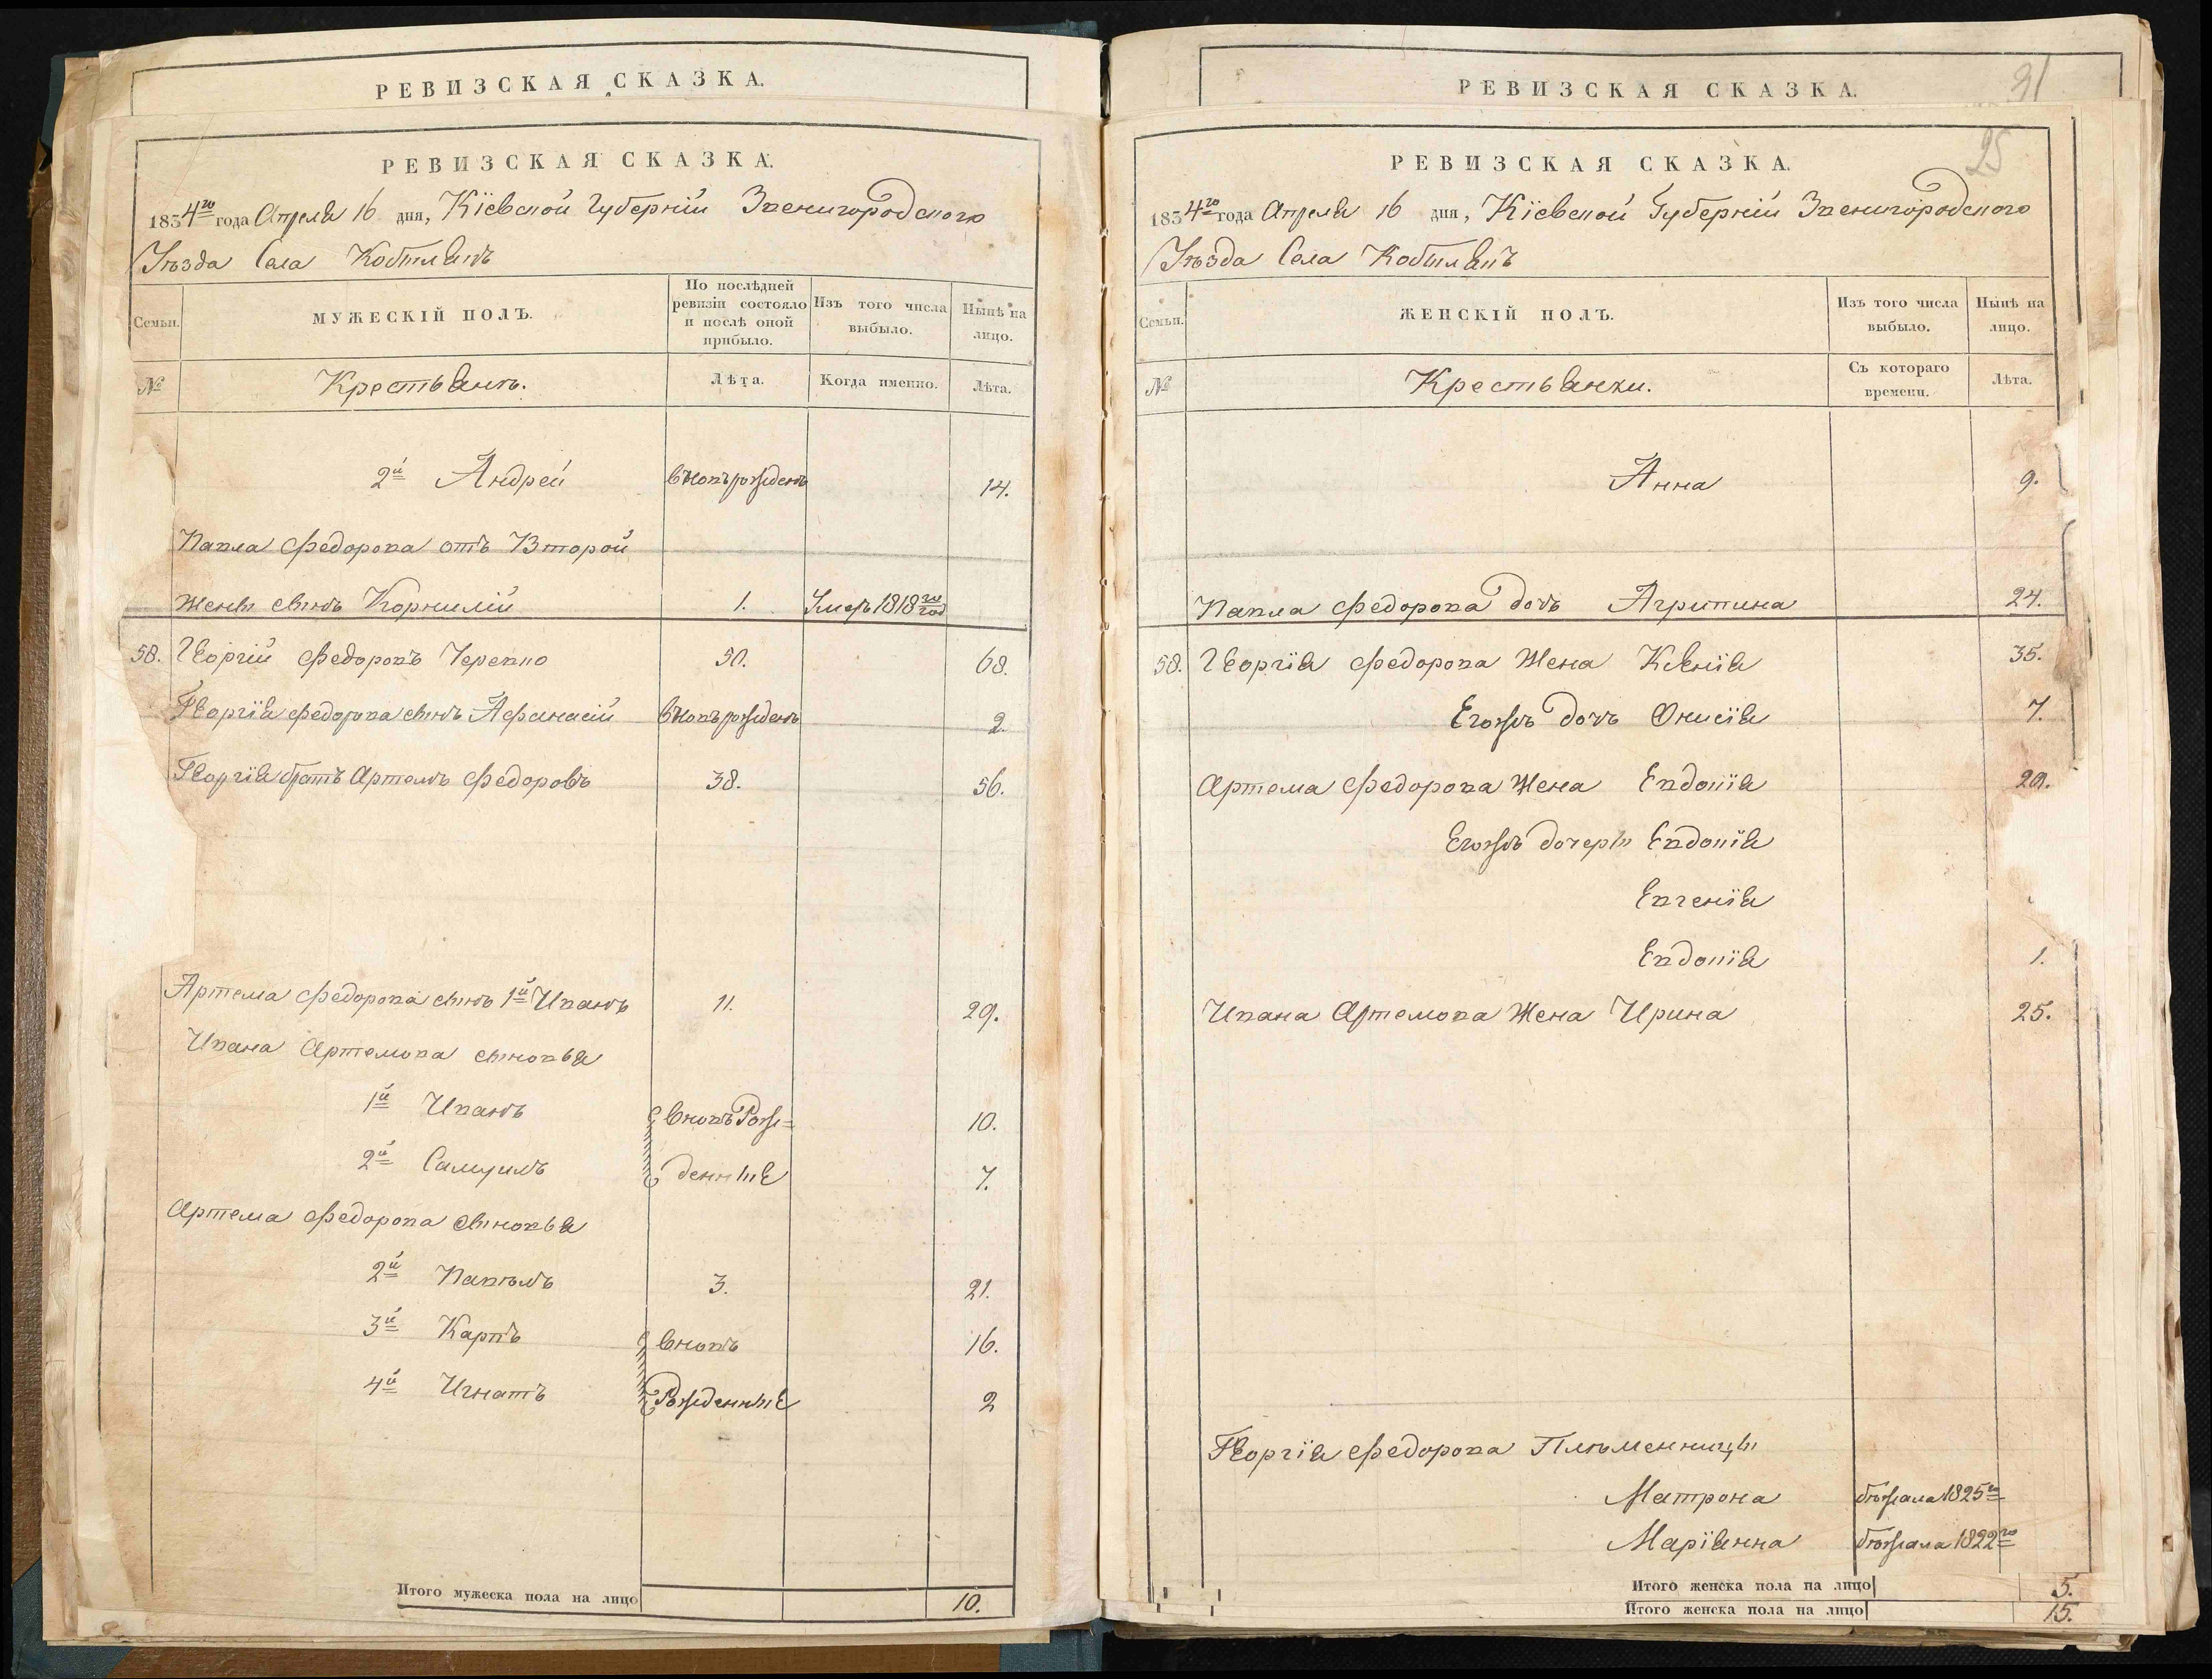 РЕВИЗСКАЯ СКАЗКА.
РЕВИЗСКАЯ СКАЗКА.
1834го года Апреля 16 дня, Кіевской Губерніи Звенигородского
Уѣзда Села Кобылякъ
Семьи.
МУЖЕСКІЙ ПОЛЪ.
По послѣдней ревизіи состояло и послѣ оной прибыло.
Изъ того числа выбыло.
Нынѣ на лицо.
№
Крестьянъ.
Лѣта.
Когда именно.
Лѣта.
2й Андрей вновърожденъ 14.
Павла Федорова отъ Второй
жены сынъ Корнилій 1. Умеръ 1818го год
58. Георгій Федоровъ Черевко 50. 68.
Георгія Федорова сынъ Афанасій вновърожденъ 2.
Георгія братъ Артемъ Федоровъ 38. 56.
Артема Федорова сынъ 1й Иванъ 11. 29.
Ивана Артемова сыновья
1й Иванъ вновъ Рож= 10.
2й Самуилъ денные 7.
Артема Федорова сыновья
2й Павелъ 3. 21.
3й Карпъ вновъ 16.
4й Игнатъ Рожденные 2
Итого мужеска пола на лицо 10.
РЕВИЗСКАЯ СКАЗКА.
91
РЕВИЗСКАЯ СКАЗКА.
25
1834го года Апреля 16 дня, Кіевской Губерніи Звенигородского
Уѣзда Села Кобылякъ
Семьи.
ЖЕНСКІЙ ПОЛЪ.
Изъ того числа выбыло.
Нынѣ на лицо.
№
Крестьянки.
Съ котораго времени.
Лѣта.
Анна 9.
Павла Федорова дочь Агрипина 24.
58. Георгія Федорова Жена Ксенія 35.
Егожъ дочь Онисія 7.
Артема Федорова Жена Евдокія
Егожъ дочеры Евдокія
Евгенія
Евдокія 1.
Ивана Артемова Жена Ирина 25.
Георгія Федорова Племенницы
Матрона бѣжала 1825го
Маріянна бѣжала 1822го
Итого женска пола на лицо 5.
Итого женска пола на лицо 15.